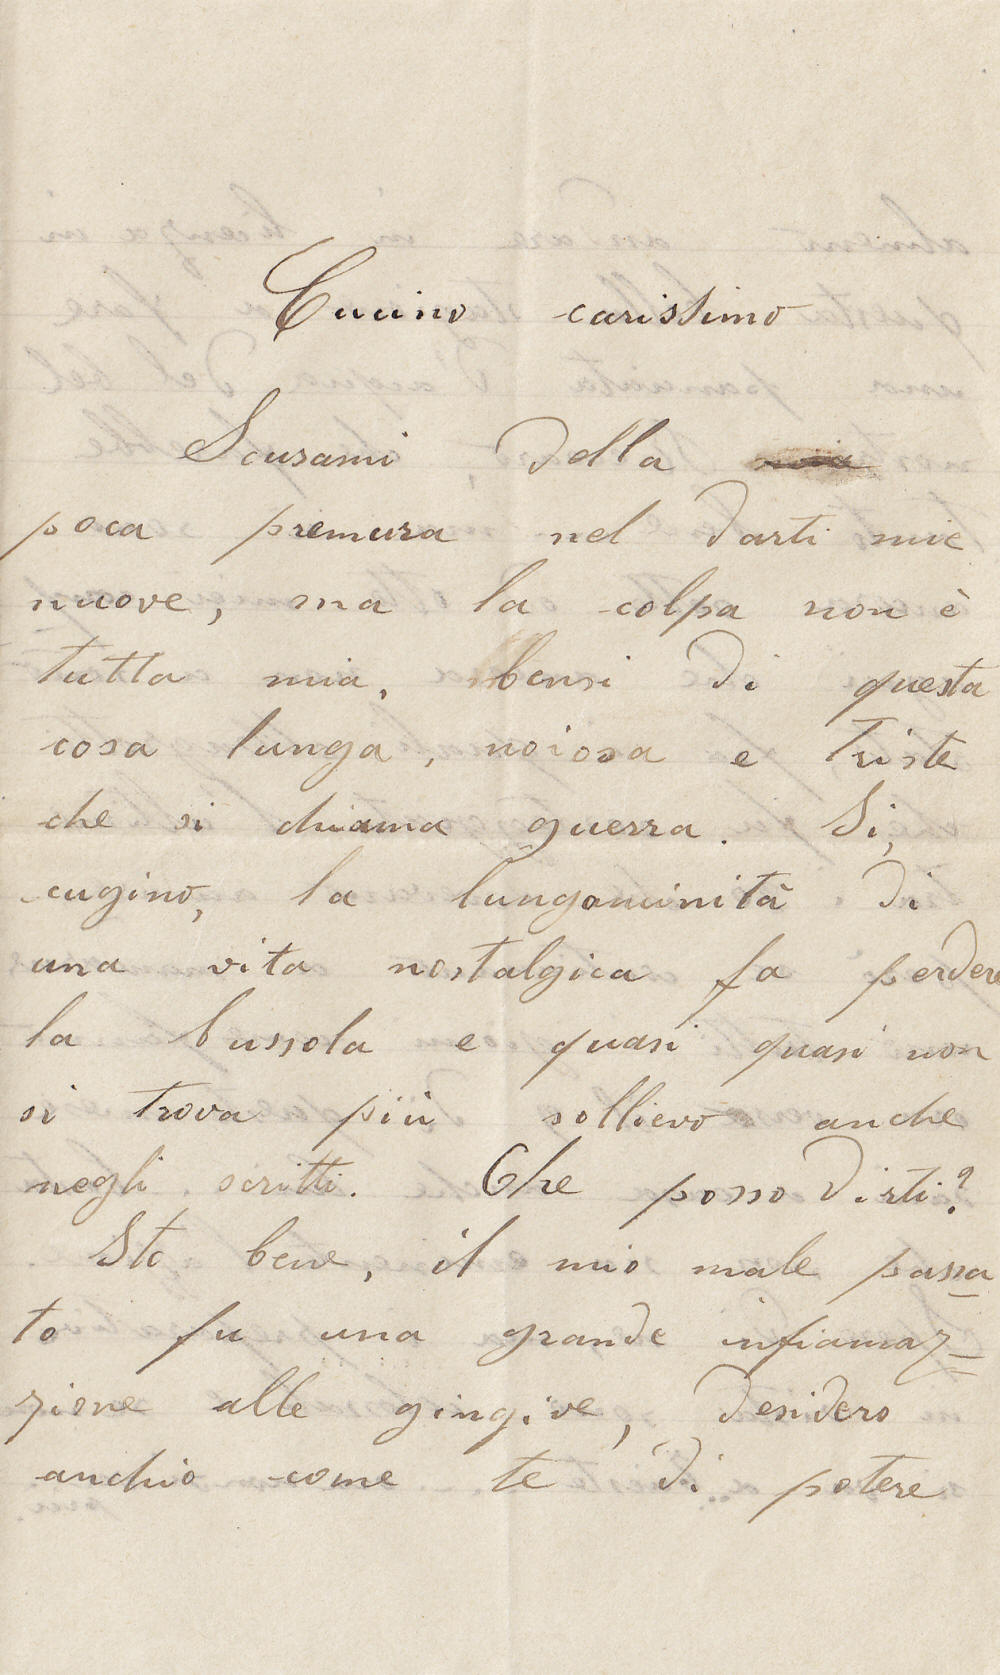 Cucino carissimo
Scusami della
poca premura nel darti mie
nuove, ma la colpa non è
tutta mia, bensi di questa
cosa lunga, noiosa e triste
che si chiama guerra. Si,
cugino, la lungaminità di
una vita nostalgica fa perdere
la bussola e quasi quasi non
si trova più sollievo anche
negli scritti. Che posso dirti?
Sto bene, il mio male passa
to fu una grande infiamaz=
zione alle gingive, desidero
anchio come te di potere